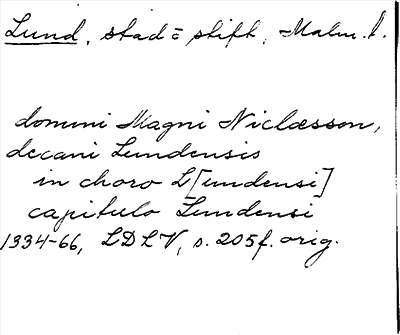 Lund, stad = stift, Malm. l.
domini Magni Niclæsson,
decani Lundensis
in choro L[undensi]
capitulo Lundensi
1334-66, LDLV, s. 205f. orig.